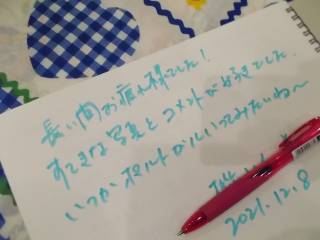 長い間お疲れ様でした！
すてきな写真とコメントが好きでした。
いつかポルトガルいってみたいね〜
2021.12.8